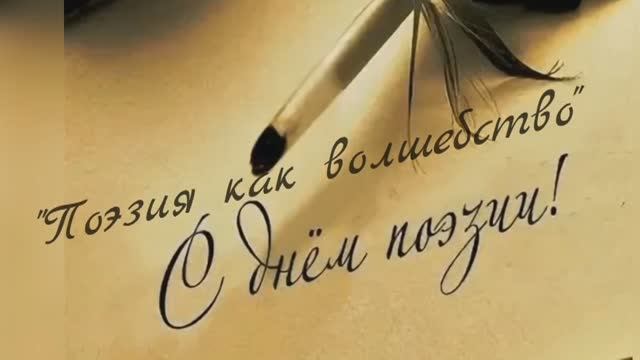 "Поэзия как волшебство"
С днём поэзии!